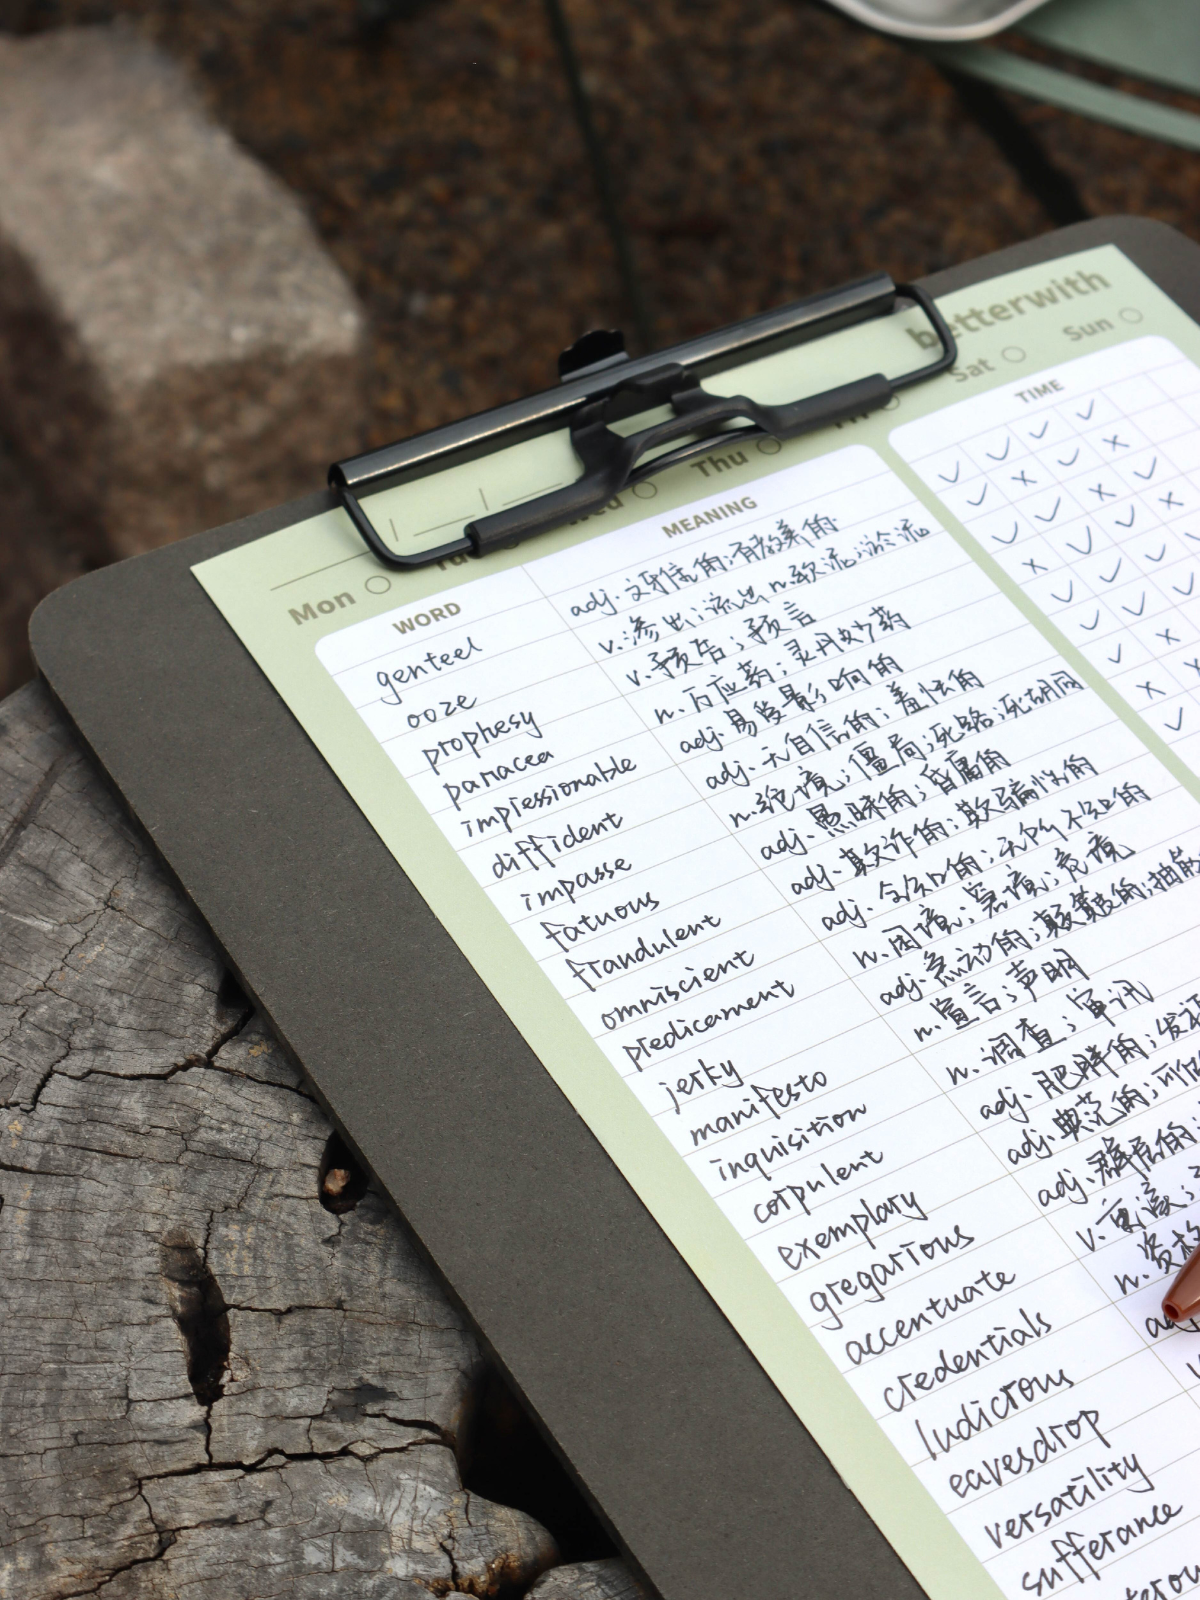 betterwith
Mon Wed Thu Sat Sun
WORD MEANING TIME
genteel adj. 文雅的;有教养的
ooze v. 渗出;流出 n. 软泥
prophesy v. 预告;预言
panacea n. 万应药;灵丹妙药
impressionable adj. 易受影响的
diffident adj. 无自信的;羞怯的
impasse n. 绝境;僵局;死路;死胡同
fatuous adj. 愚昧的;昏庸的
fraudulent adj. 欺诈的;欺骗性的
omniscient adj. 全知的;无所不知的
predicament n. 困境;窘境;危境
jerky adj. 急动的;颠簸的;抽筋
manifesto n. 宣言;声明
inquisition n. 调查;审讯
corpulent adj. 肥胖的;发福
exemplary adj. 典范的;可
gregarious adj. 群居的;
accentuate v. 重读;
credentials n. 资格
ludicrous
eavesdrop
versatility
sufferance